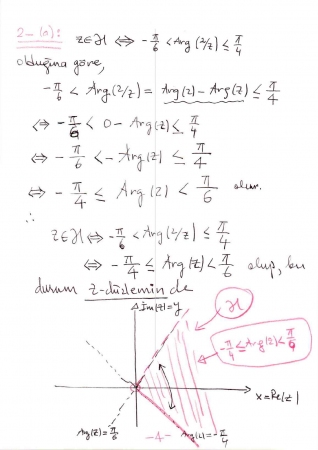 2-(a): z∈ℋ ⇔ -π/6 < Arg(2/z) ≤ π/4
olduğuna göre,
-π/6 < Arg(2/z) = Arg(2) - Arg(z) ≤ π/4
⇔ -π/6 < 0 - Arg(z) ≤ π/4
⇔ -π/6 < -Arg(z) ≤ π/4
⇔ -π/4 ≤ Arg(z) < π/6 olur.
∴
z∈ℋ ⇔ -π/6 < Arg(2/z) ≤ π/4
⇔ -π/4 ≤ Arg(z) < π/6 olup, bu
durum z-düzleminde
Im(z)=y
ℋ
-π/4 ≤ Arg(z) < π/6
x=Re(z)
Arg(z)=π/6
-4-
Arg(z)=-π/4